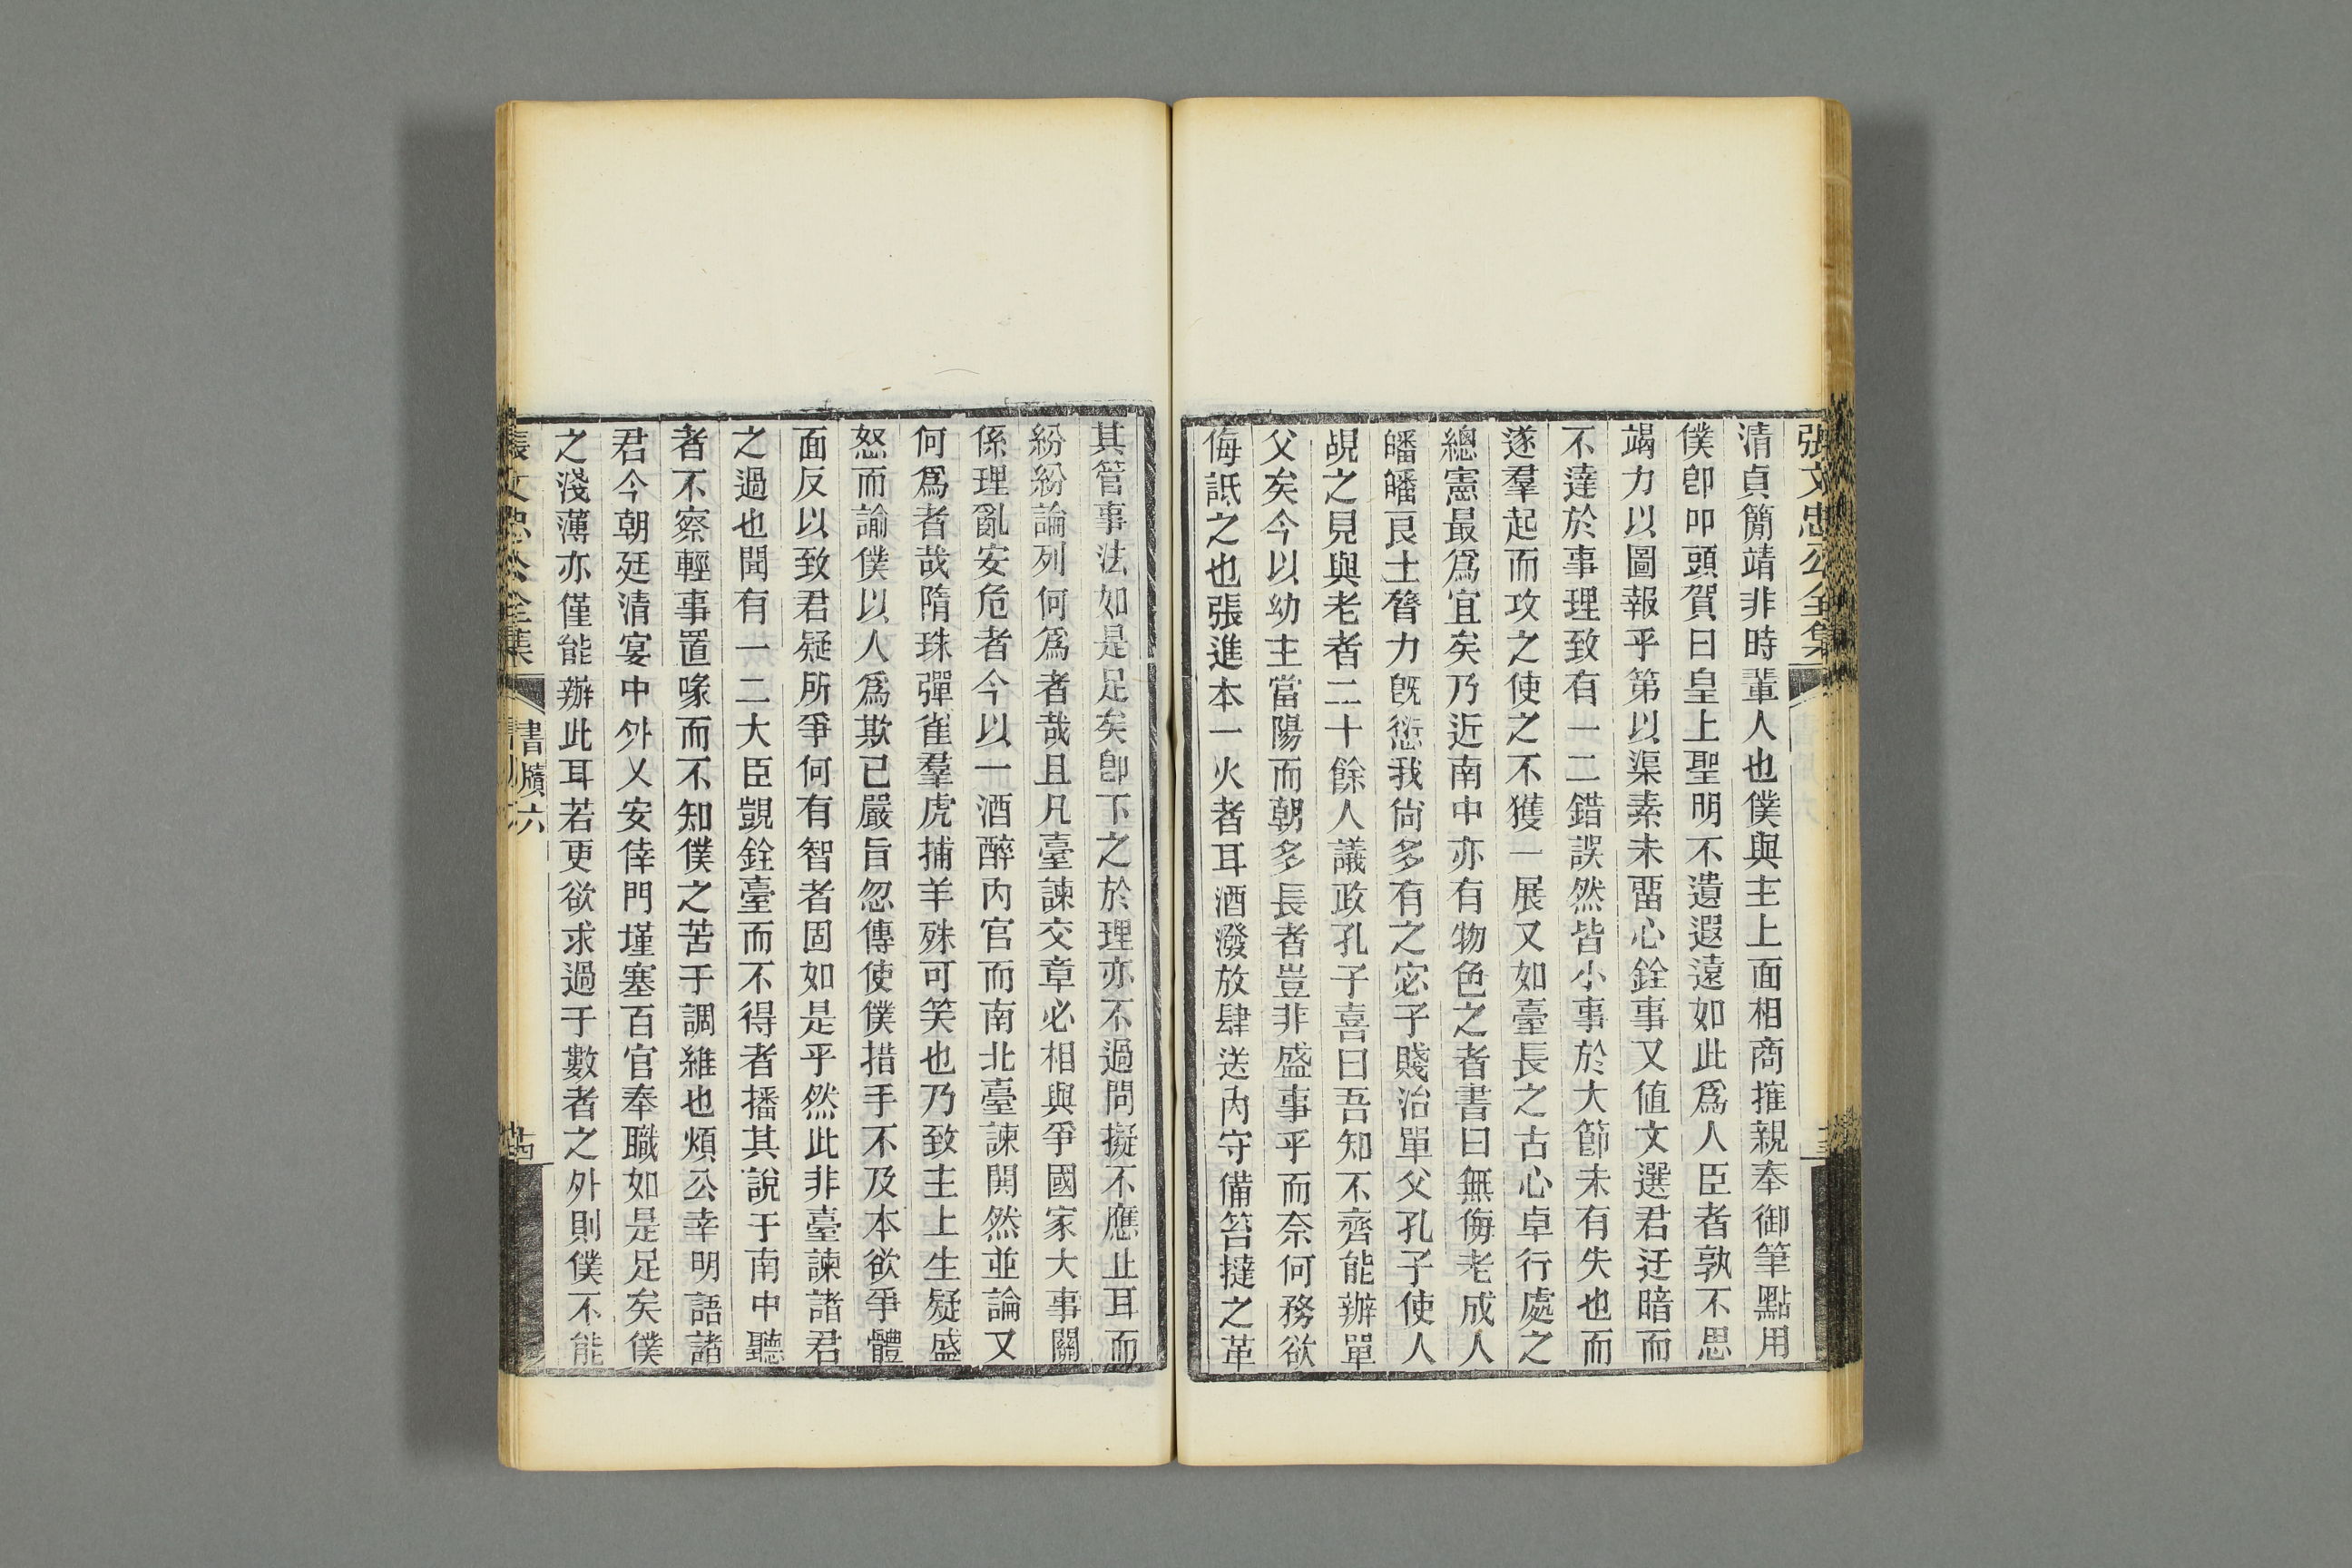 張文忠公全集
清貞簡靖非時輩人也僕與主上面相商搉親奉御筆點用
僕卽叩頭賀曰皇上聖明不遺遐遠如此爲人臣者孰不思
竭力以圖報乎第以渠素未畱心銓事又値文選君迂暗而
不達於事理致有一二錯誤然皆小事於大節未有失也而
遂羣起而攻之使之不獲一展又如臺長之古心卓行處之
總憲最爲宜矣乃近南中亦有物色之者書曰無侮老成人
皤皤良士膂力旣愆我尙多有之宓子賤治單父孔子使人
覘之見與老者二十餘人議政孔子喜曰吾知不齊能辦單
父矣今以幼主當陽而朝多長者豈非盛事乎而奈何務欲
侮詆之也張進本一火者耳酒潑放肆送內守備笞撻之革
其管事法如是足矣卽下之於理亦不過問擬不應止耳而
紛紛論列何爲者哉且凡臺諫交章必相與爭國家大事關
係理亂安危者今以一酒醉內官而南北臺諫鬨然並論又
何爲者哉隋珠彈雀羣虎捕羊殊可笑也乃致主上生疑盛
怒而諭僕以人爲欺已嚴旨忽傳使僕措手不及本欲爭體
面反以致君疑所爭何有智者固如是乎然此非臺諫諸君
之過也聞有一二大臣覬銓臺而不得者播其說于南中聽
者不察輕事置喙而不知僕之苦于調維也煩公幸明語諸
君今朝廷清宴中外乂安倖門墐塞百官奉職如是足矣僕
之淺薄亦僅能辦此耳若更欲求過于數者之外則僕不能
張文忠公全集
書牘六
古